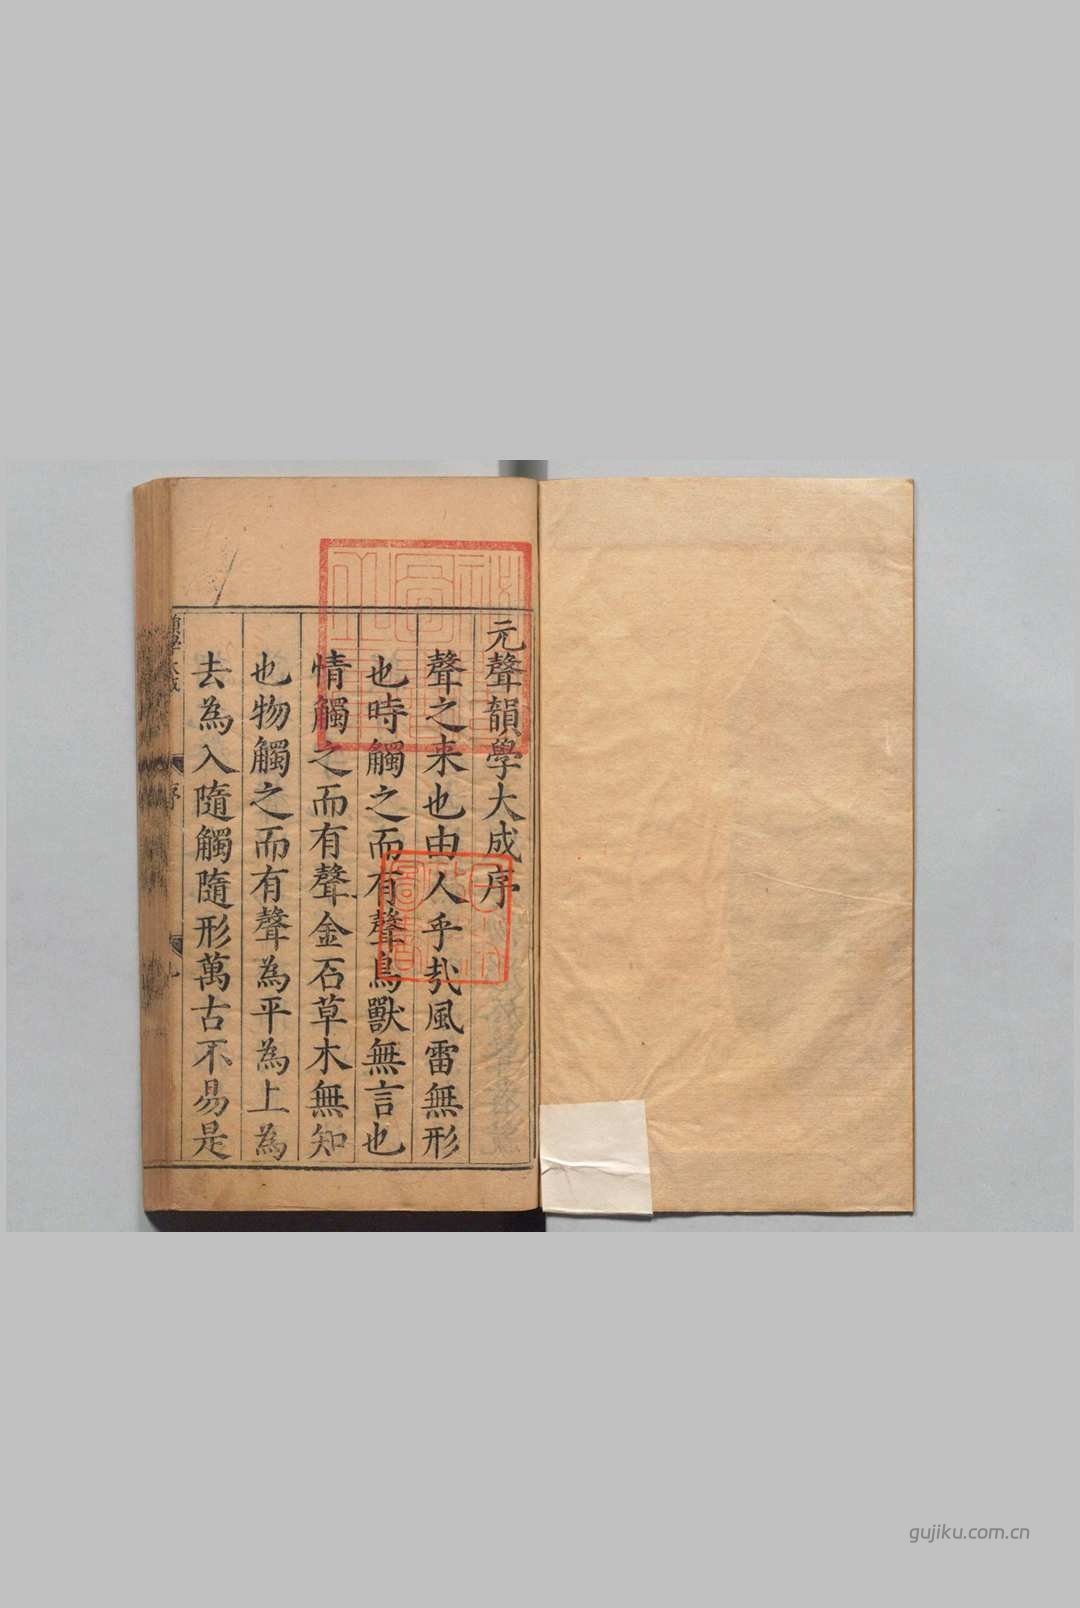 元聲韻學大成序
聲之来也由人乎㢤風雷無形
也時觸之而有聲鳥獸無言也
情觸之而有聲金石草木無知
也物觸之而有聲為平為上為
去為入隨觸隨形萬古不易是
序
gujiku.com.cn